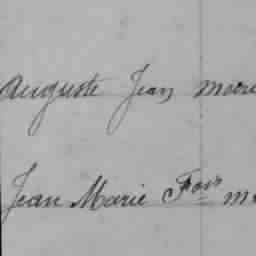 Auguste Jean
Jean Marie Fois